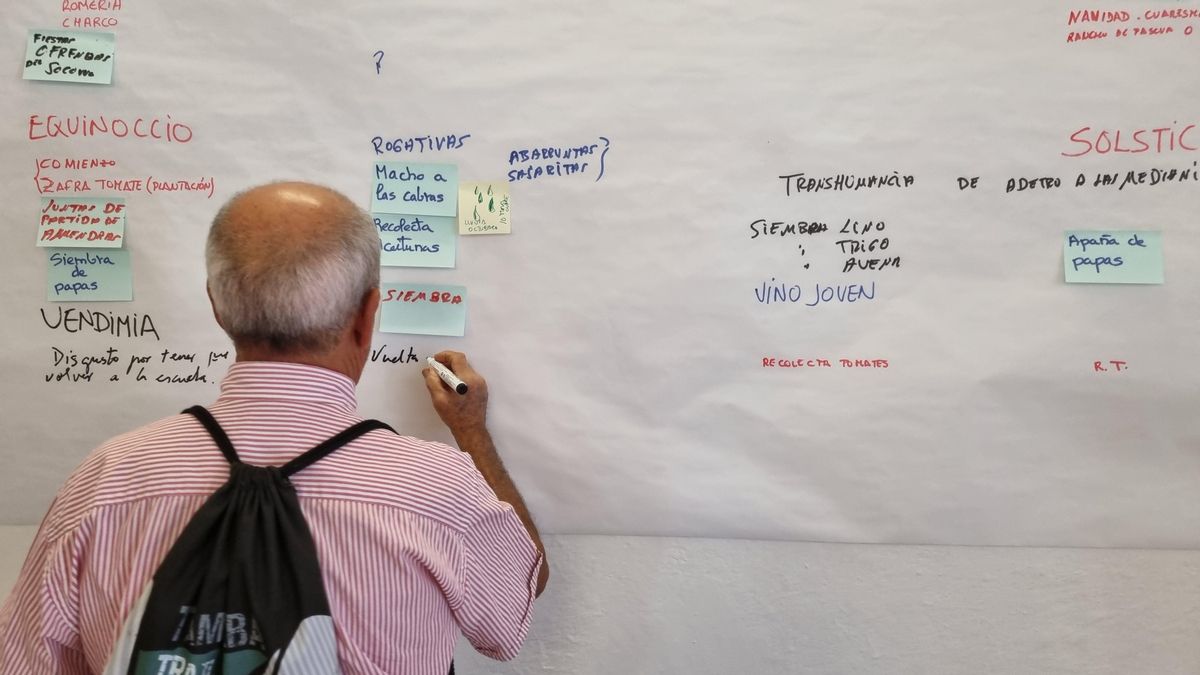 ROMERIA
CHARCO
FIESTAS
OFRENDAS
DEL SOCORRO
EQUINOCCIO
COMIENZO
ZAFRA TOMATE (PLANTACIÓN)
JUNTAS DE
PARTIDO DE
ALMENDRAS
Siembra
de
papas
VENDIMIA
Disgusto por tener que
volver a la escuela.
ROGATIVAS
Macho a
las cabras
Recolecta
SIEMBRA
Vuelta
ABARRUNTAS
TRANSHUMANCIA DE ADETRO A LAS MEDIANI
SIEMBRA LINO
" TRIGO
" AVENA
VINO JOVEN
RECOLECTA TOMATES
NAVIDAD. CUARESM
RANCHO DE PASCUA O
SOLSTIC
Apaña de
papas
R.T.
TAMBA